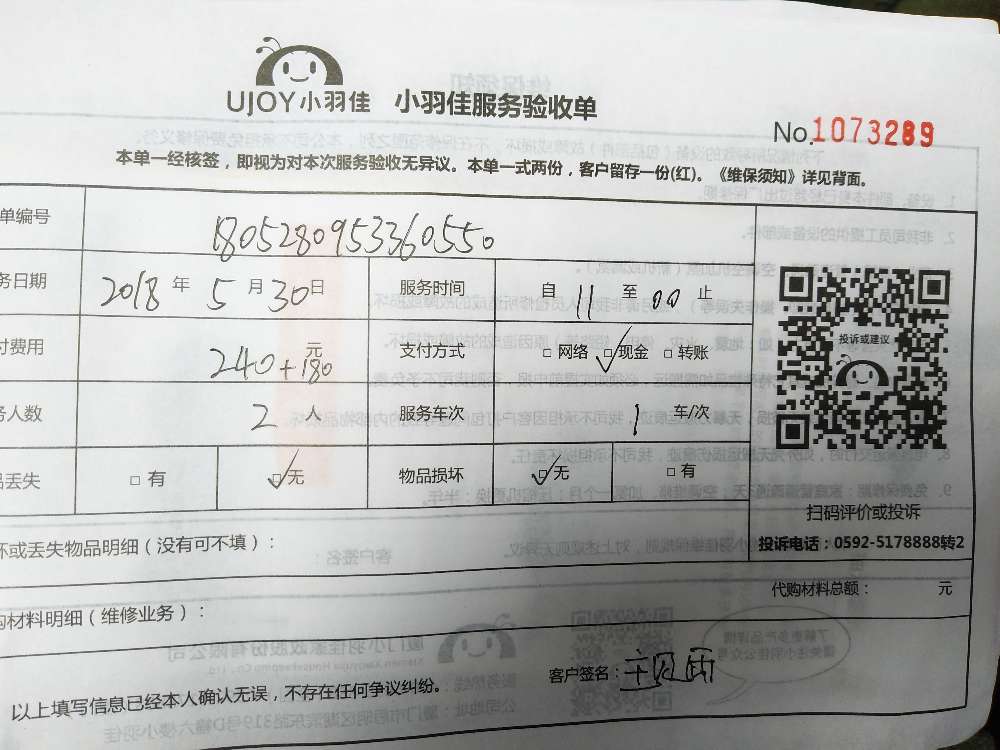 UJOY小羽佳 小羽佳服务验收单
No.1073289
本单一经核签，即视为对本次服务验收无异议。本单一式两份，客户留存一份(红)。《维保须知》详见背面。
单编号 1805280953360550
务日期 2018年5月30日 服务时间 自11至00止
付费用 240+180元 支付方式 □网络 ☑现金 □转账
务人数 2人 服务车次 1车/次
品丢失 □有 ☑无 物品损坏 ☑无 □有
投诉或建议
扫码评价或投诉
投诉电话：0592-5178888转2
坏或丢失物品明细（没有可不填）：
购材料明细（维修业务）：
代购材料总额： 元
以上填写信息已经本人确认无误，不存在任何争议纠纷。
客户签名：